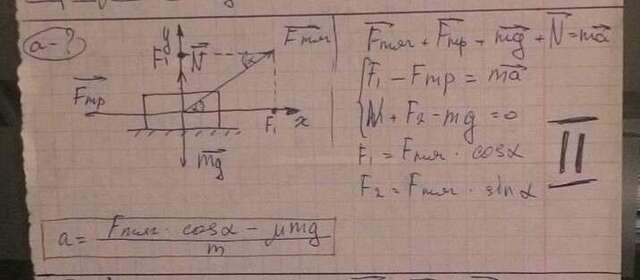 a - ?
y
F₁ N⃗ F⃗тяг
α
F⃗тр α
F₁ x
m⃗g
F⃗тяг + F⃗тр + m⃗g + N⃗ = ma⃗
F₁ - Fтр = ma⃗
N + F₂ - mg = 0
F₁ = Fтяг · cosα
F₂ = Fтяг · sinα
II
a = (Fтяг · cosα - μmg) / m